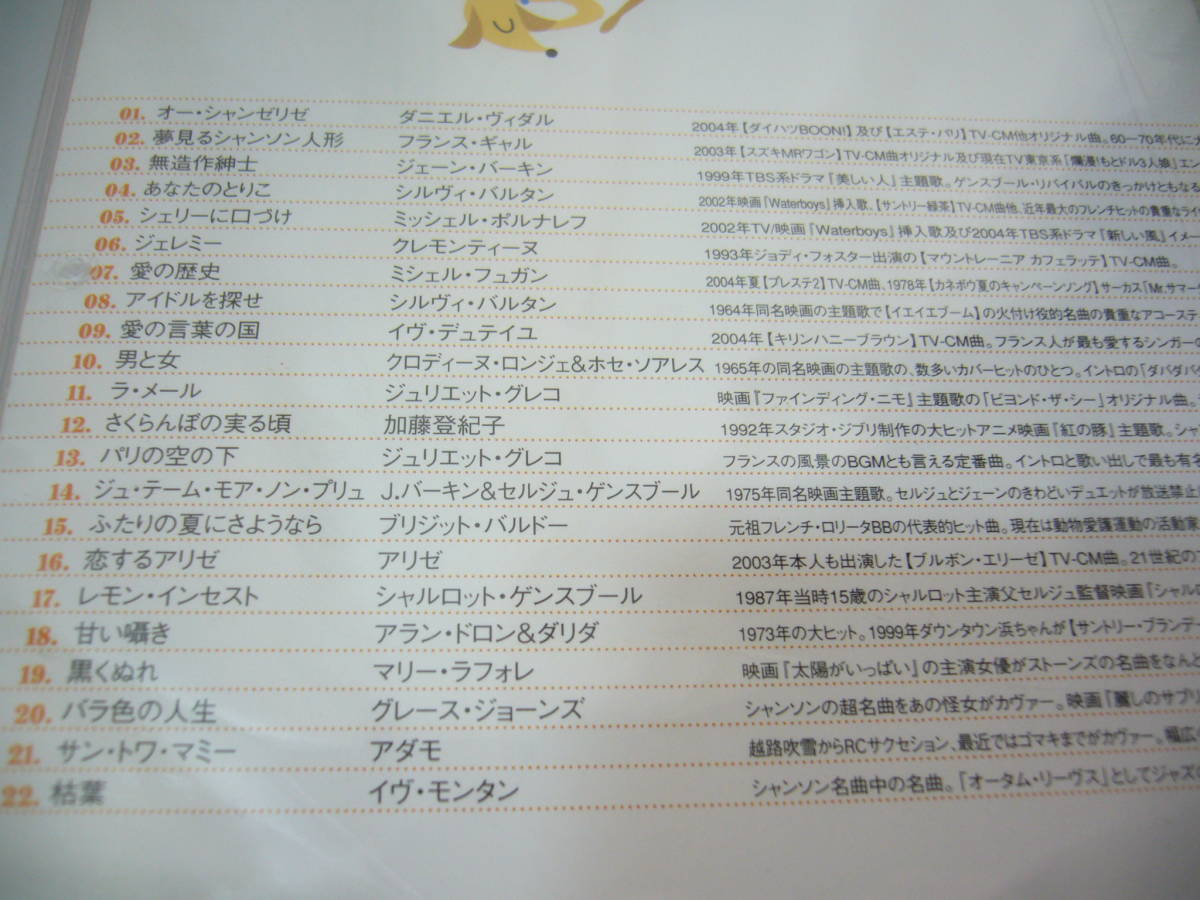 01. オー・シャンゼリゼ ダニエル・ヴィダル 2004年【ダイハツBOON!】及び【エステ・パリ】TV-CM他オリジナル曲。60―70年代に
02. 夢見るシャンソン人形 フランス・ギャル 2003年【スズキMRワゴン】TV-CM曲オリジナル及び現在TV東京系「爛漫!もとドル3人娘」エン
03. 無造作紳士 ジェーン・バーキン 1999年TBS系ドラマ『美しい人』主題歌。ゲンスブール・リバイバルのきっかけともなる
04. あなたのとりこ シルヴィ・バルタン 2002年映画『Waterboys』挿入歌、【サントリー緑茶】TV-CM曲他、近年最大のフレンチヒットの貴重なライ
05. シェリーに口づけ ミッシェル・ポルナレフ 2002年TV/映画『Waterboys』挿入歌及び2004年TBS系ドラマ『新しい風』イメー
06. ジェレミー クレモンティーヌ 1993年ジョディ・フォスター出演の【マウントレーニア カフェラッテ】TV-CM曲。
07. 愛の歴史 ミシェル・フュガン 2004年夏【プレステ2】TV-CM曲、1978年【カネボウ夏のキャンペーンソング】サーカス「Mr.サマー
08. アイドルを探せ シルヴィ・バルタン 1964年同名映画の主題歌で【イエイエブーム】の火付け役的名曲の貴重なアコーステ
09. 愛の言葉の国 イヴ・デュテイユ 2004年【キリンハニーブラウン】TV-CM曲。フランス人が最も愛するシンガーの
10. 男と女 クロディーヌ・ロンジェ&ホセ・ソアレス 1965年の同名映画の主題歌の、数多いカバーヒットのひとつ。イントロの「ダバダバ
11. ラ・メール ジュリエット・グレコ 映画『ファインディング・ニモ』主題歌の「ビヨンド・ザ・シー」オリジナル曲。
12. さくらんぼの実る頃 加藤登紀子 1992年スタジオ・ジブリ制作の大ヒットアニメ映画『紅の豚』主題歌。シャ
13. パリの空の下 ジュリエット・グレコ フランスの風景のBGMとも言える定番曲。イントロと歌い出しで最も有名
14. ジュ・テーム・モア・ノン・プリュ J.バーキン&セルジュ・ゲンスブール 1975年同名映画主題歌。セルジュとジェーンのきわどいデュエットが放送禁止
15. ふたりの夏にさようなら ブリジット・バルドー 元祖フレンチ・ロリータBBの代表的ヒット曲。現在は動物愛護運動の活動家
16. 恋するアリゼ アリゼ 2003年本人も出演した【ブルボン・エリーゼ】TV-CM曲。21世紀の
17. レモン・インセスト シャルロット・ゲンスブール 1987年当時15歳のシャルロット主演父セルジュ監督映画『シャル
18. 甘い囁き アラン・ドロン&ダリダ 1973年の大ヒット。1999年ダウンタウン浜ちゃんが【サントリー・ブランデー
19. 黒くぬれ マリー・ラフォレ 映画『太陽がいっぱい』の主演女優がストーンズの名曲をなんと
20. バラ色の人生 グレース・ジョーンズ シャンソンの超名曲をあの怪女がカヴァー。映画『麗しのサブリ
21. サン・トワ・マミー アダモ 越路吹雪からRCサクセション、最近ではゴマキまでがカヴァー。幅広
22. 枯葉 イヴ・モンタン シャンソン名曲中の名曲。「オータム・リーヴス」としてジャズ